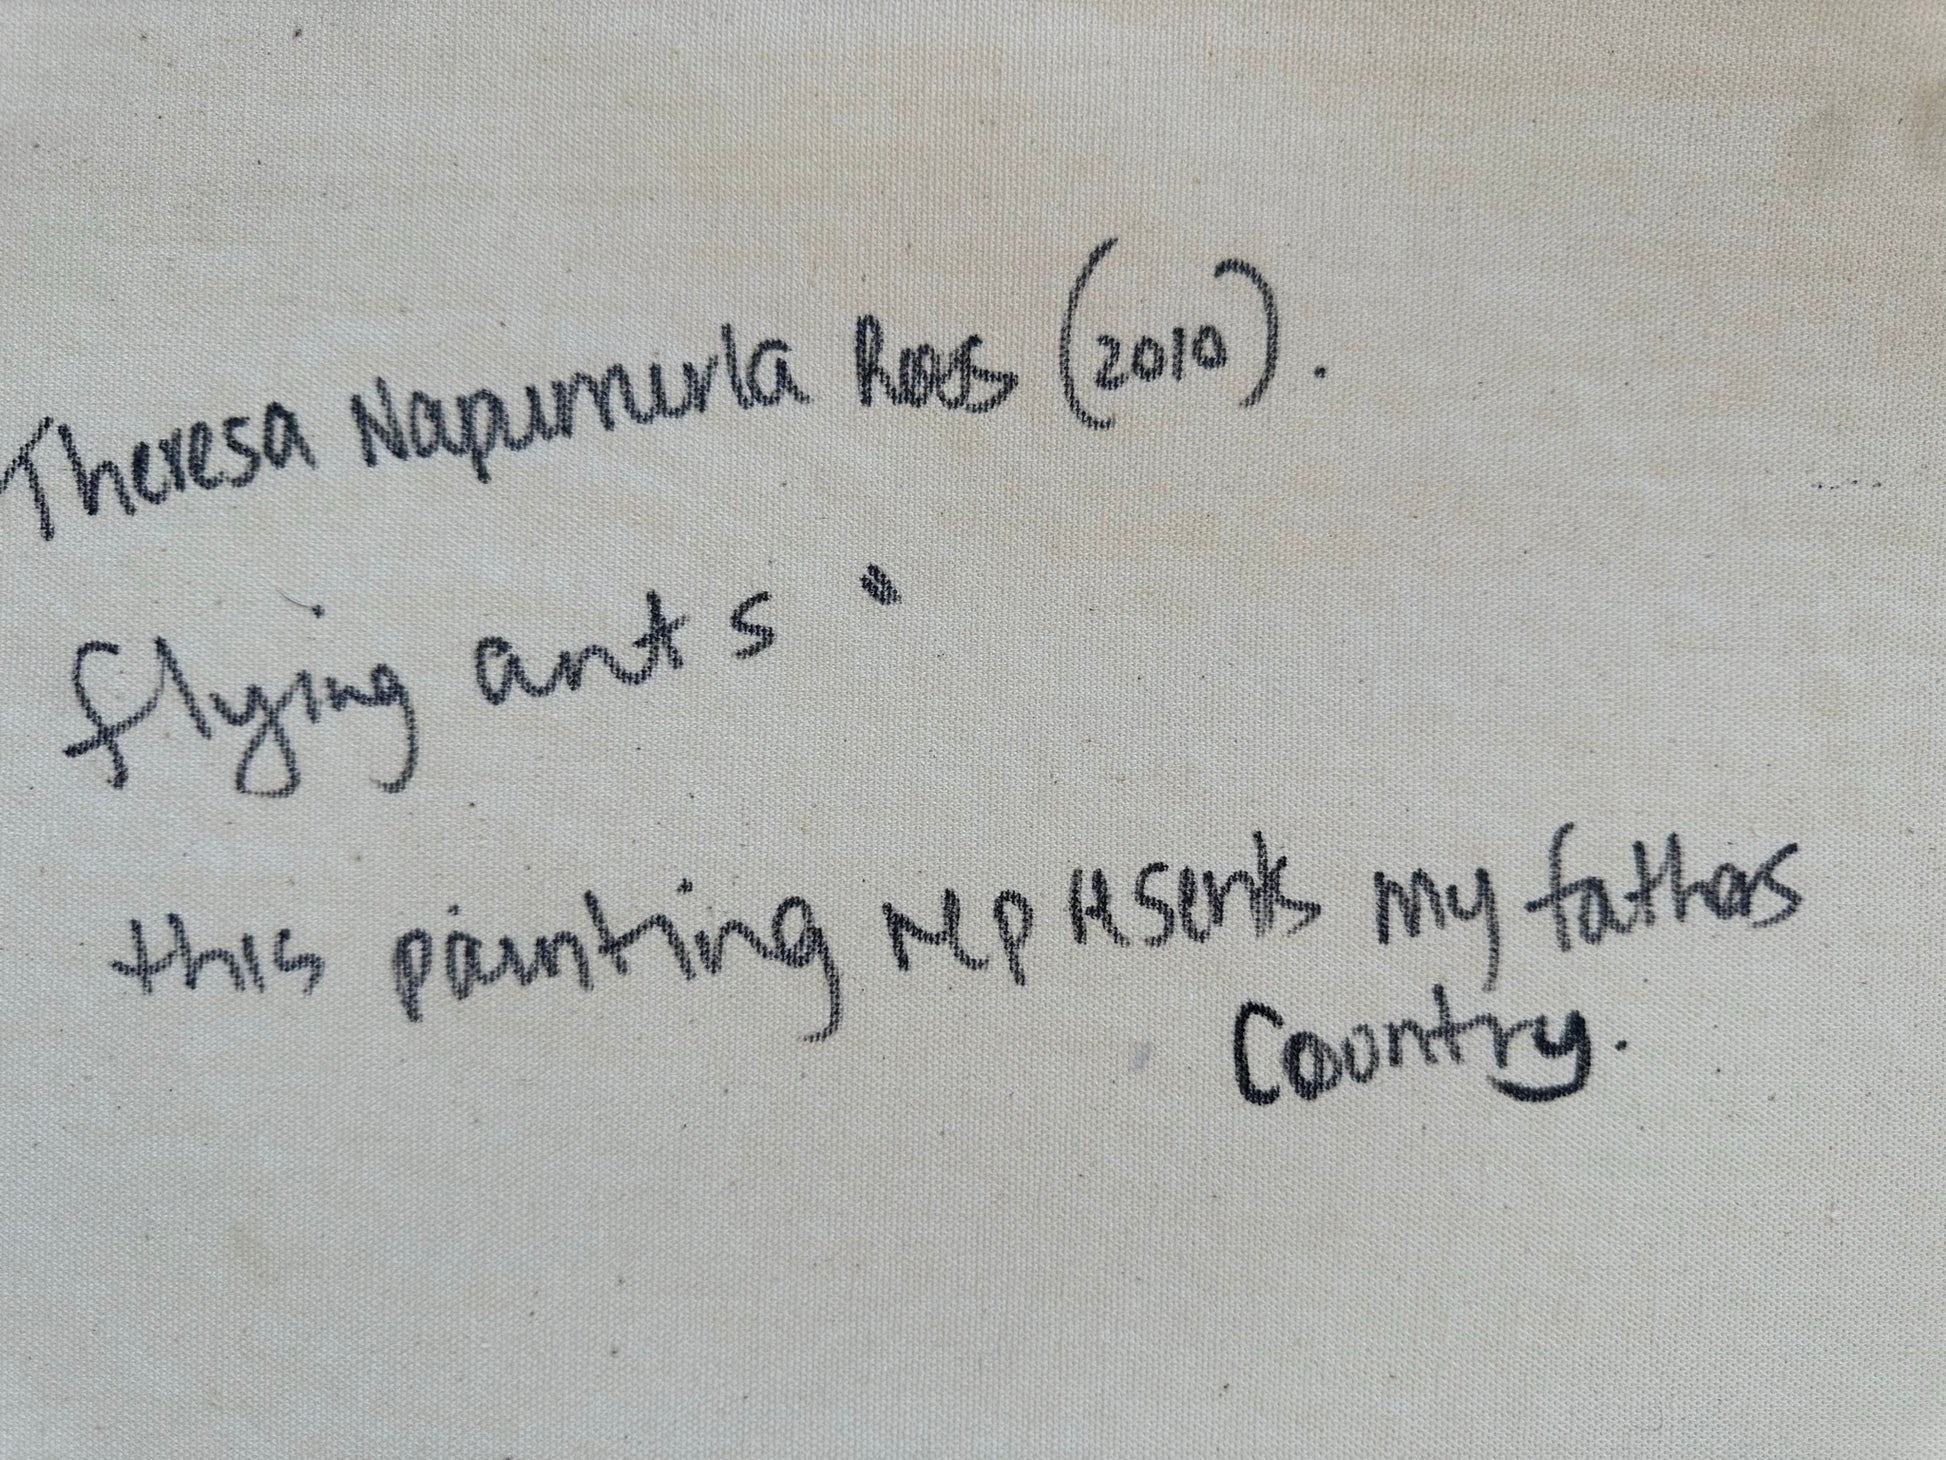 Theresa Napurrurla Ross (2010).
flying ants.
this painting represents my fathers
Country.